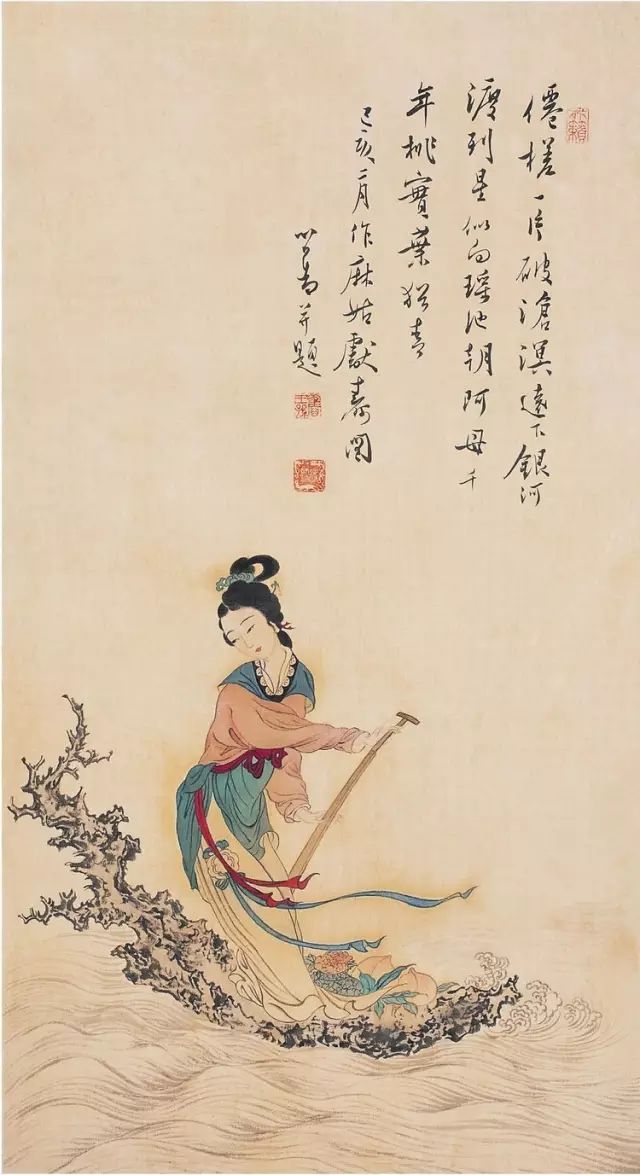 僊槎一片破滄溟遠下銀河
渡列星似向瑤池朝阿母千
年桃實葉猶青
己亥二月作麻姑獻壽圖
心畬并題
舊王孫